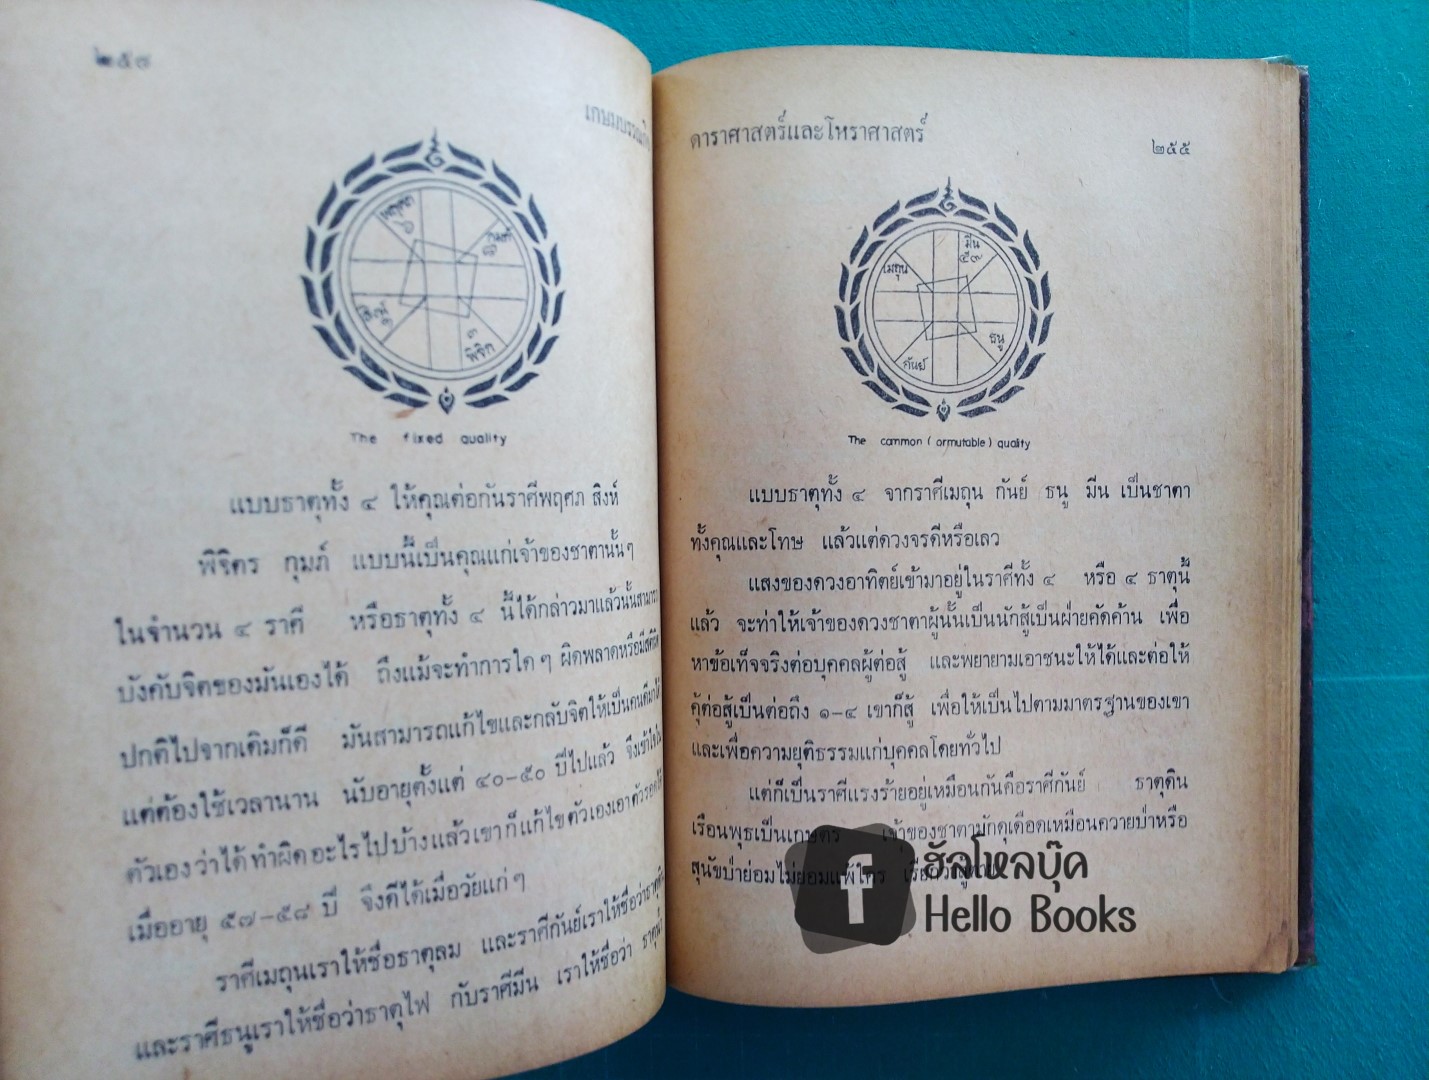 ๒๕๔
เกษมบรรณกิจ
พฤศภ
๖
กุมภ์
๘
สิงห์
๑
๓
พิจิก
The fixed quality
แบบธาตุทั้ง ๔ ให้คุณต่อกันราศีพฤศภ สิงห์
พิจิตร กุมภ์ แบบนี้เป็นคุณแก่เจ้าของชาตานั้นๆ
ในจำนวน ๔ ราศี หรือธาตุทั้ง ๔ นี้ได้กล่าวมาแล้วนั้นสามารถ
บังคับจิตของมันเองได้ ถึงแม้จะทำการใดๆ ผิดพลาดหรือมีสติ
ปกติไปจากเดิมก็ดี มันสามารถแก้ไขและกลับจิตให้เป็นคนดีมาได้
แต่ต้องใช้เวลานาน นับอายุตั้งแต่ ๔๐-๕๐ ปีไปแล้ว จึงเข้าใจใน
ตัวเองว่าได้ทำผิดอะไรไปบ้างแล้วเขาก็แก้ไขตัวเองเอาตัวรอดได้
เมื่ออายุ ๕๗-๕๘ ปี จึงดีได้เมื่อวัยแก่ๆ
ราศีเมถุนเราให้ชื่อธาตุลม และราศีกันย์เราให้ชื่อว่าธาตุดิน
และราศีธนูเราให้ชื่อว่าธาตุไฟ กับราศีมีน เราให้ชื่อว่า ธาตุน้ำ
ดาราศาสตร์และโหราศาสตร์
๒๕๕
มีน
๕๗
เมถุน
ธนู
กันย์
The common ( ormutable ) quality
แบบธาตุทั้ง ๔ จากราศีเมถุน กันย์ ธนู มีน เป็นชาตา
ทั้งคุณและโทษ แล้วแต่ดวงจรดีหรือเลว
แสงของดวงอาทิตย์เข้ามาอยู่ในราศีทั้ง ๔ หรือ ๔ ธาตุนี้
แล้ว จะทำให้เจ้าของดวงชาตาผู้นั้นเป็นนักสู้เป็นฝ่ายคัดค้าน เพื่อ
หาข้อเท็จจริงต่อบุคคลผู้ต่อสู้ และพยายามเอาชนะให้ได้และต่อให้
คู้ต่อสู้เป็นต่อถึง ๑-๔ เขาก็สู้ เพื่อให้เป็นไปตามมาตรฐานของเขา
และเพื่อความยุติธรรมแก่บุคคลโดยทั่วไป
แต่ก็เป็นราศีแรงร้ายอยู่เหมือนกันคือราศีกันย์ ธาตุดิน
เรือนพุธเป็นเกษตร เจ้าของชาตามักดุเดือดเหมือนควายป่าหรือ
สุนัขป่าย่อมไม่ยอมแพ้ใคร
ฮัลโหลบุ๊ค
Hello Books